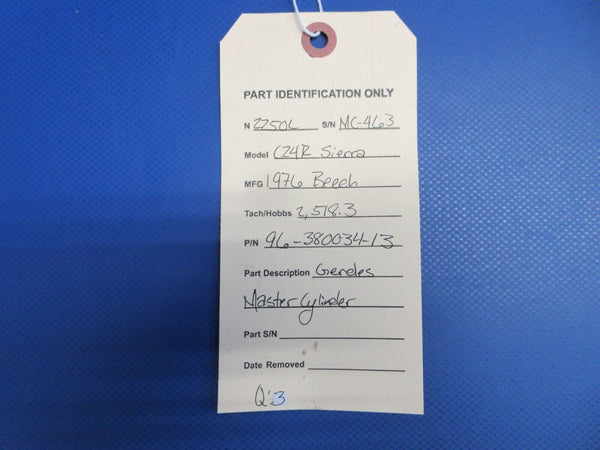 PART IDENTIFICATION ONLY
N 2250L S/N MC-463
Model C24R Sierra
MFG 1976 Beech
Tach/Hobbs 2,518.3
P/N 96-380034-13
Part Description Gerdes
Master Cylinder
Part S/N
Date Removed
Q:3